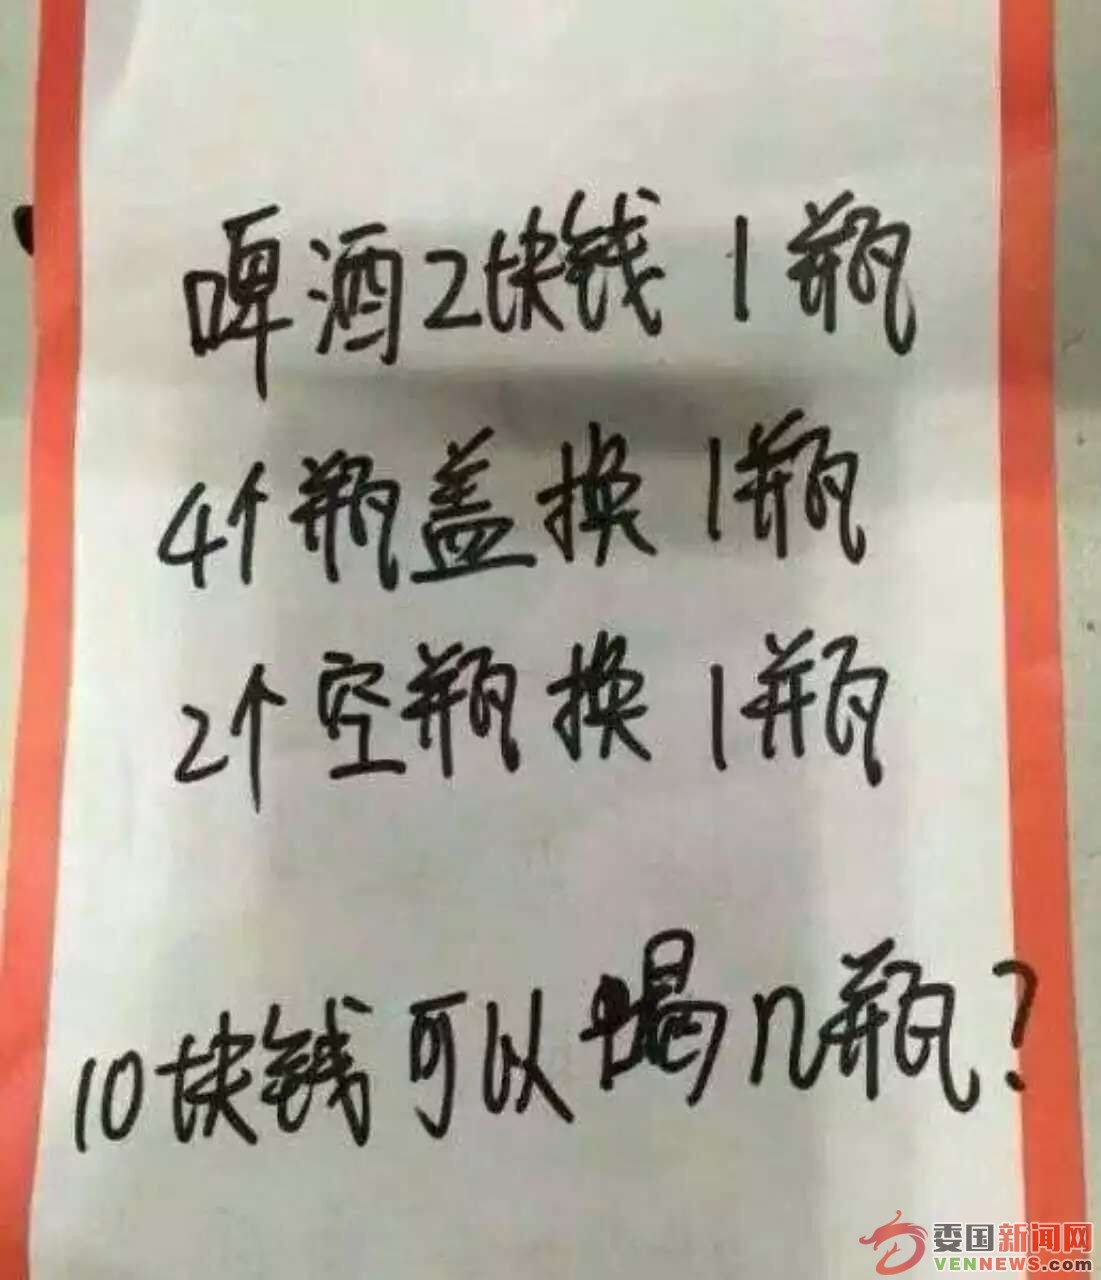 啤酒2块钱1瓶
4个瓶盖换1瓶
2个空瓶换1瓶
10块钱可以喝n瓶?
委国新闻网
VENNEWS.com